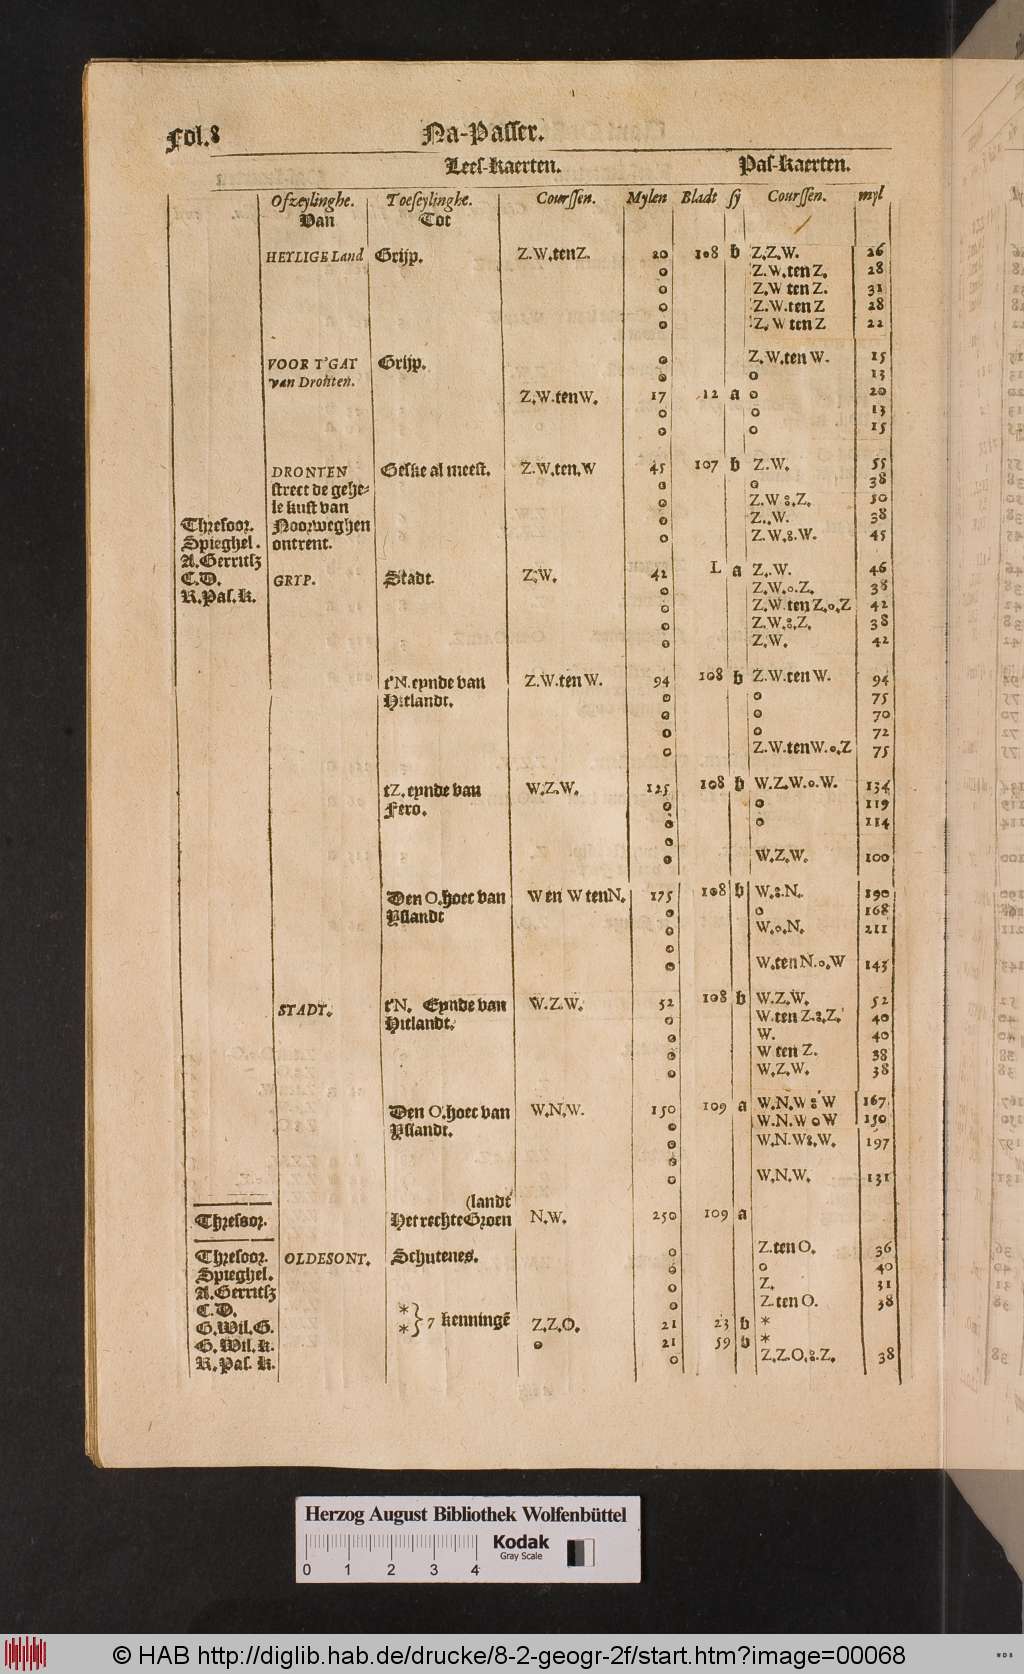 Fol.8 Na-Passer.
Lees-Kaerten. Pas-Kaerten.
Ofzeylinghe. Toeseylinghe. Courssen. Mylen Bladt sy Courssen. myl
Van Tot
HEYLIGE Land Grijp. Z.W.tenZ. 20 108 b Z.Z.W. 26
o Z.W.ten Z. 28
o Z.W ten Z. 31
o Z.W.ten Z 28
o Z.W ten Z 22
VOOR T'GAT Grijp. o Z.W.ten W. 15
van Dronten. o o 13
Z.W.tenW. 17 12 a o 20
o o 13
o o 15
DRONTEN Geske al meest. Z.W.ten.W 45 107 b Z.W. 55
strect de gehe- o o 38
le kust van o Z.W.8.Z. 50
Thresoor. Noorweghen o Z.W. 38
Spieghel. ontrent. o Z.W.8.W. 45
A.Gerritsz
C.D. GRYP. Stadt. Z.W. 42 L a Z.W. 46
R.Pas.k. o Z.W.o.Z. 38
o Z.W.ten Z.o.Z 42
o Z.W.8.Z. 38
o Z.W. 42
t'N.eynde van Z.W.ten W. 94 108 b Z.W.ten W. 94
Hitlandt. o o 75
o o 70
o o 72
o Z.W.tenW.o.Z 75
tZ.eynde van W.Z.W. 125 108 b W.Z.W.o.W. 134
Fero. o o 119
o o 114
o
o W.Z.W. 100
Den O.hoec van W en W tenN. 175 108 b W.8.N. 190
Yslandt o o 168
o W.o.N. 211
o
o W.ten N.o.W 143
STADT. t'N. Eynde van W.Z.W. 52 108 b W.Z.W. 52
Hitlandt. o W.ten Z.8.Z. 40
o W. 40
o W ten Z. 38
o W.Z.W. 38
Den O.hoec van W.N.W. 150 109 a W.N.W 8 W 167
Yslandt. o W.N.W o W 150
o W.N.W8.W. 197
o
o W.N.W. 131
(landt
Thresoor. Het rechte Groen N.W. 250 109 a
Thresoor. OLDESONT. Schutenes. o Z.ten O. 36
Spieghel. o o 40
A.Gerritsz o Z. 31
C.D. o Z.ten O. 38
G.Wil.G. * * } 7 kenningē Z.Z.O. 21 23 b *
G.Wil.k. o 21 59 b *
R.Pas.k. o Z.Z.O.8.Z. 38
Herzog August Bibliothek Wolfenbüttel
Kodak
Gray Scale
0 1 2 3 4
© HAB http://diglib.hab.de/drucke/8-2-geogr-2f/start.htm?image=00068